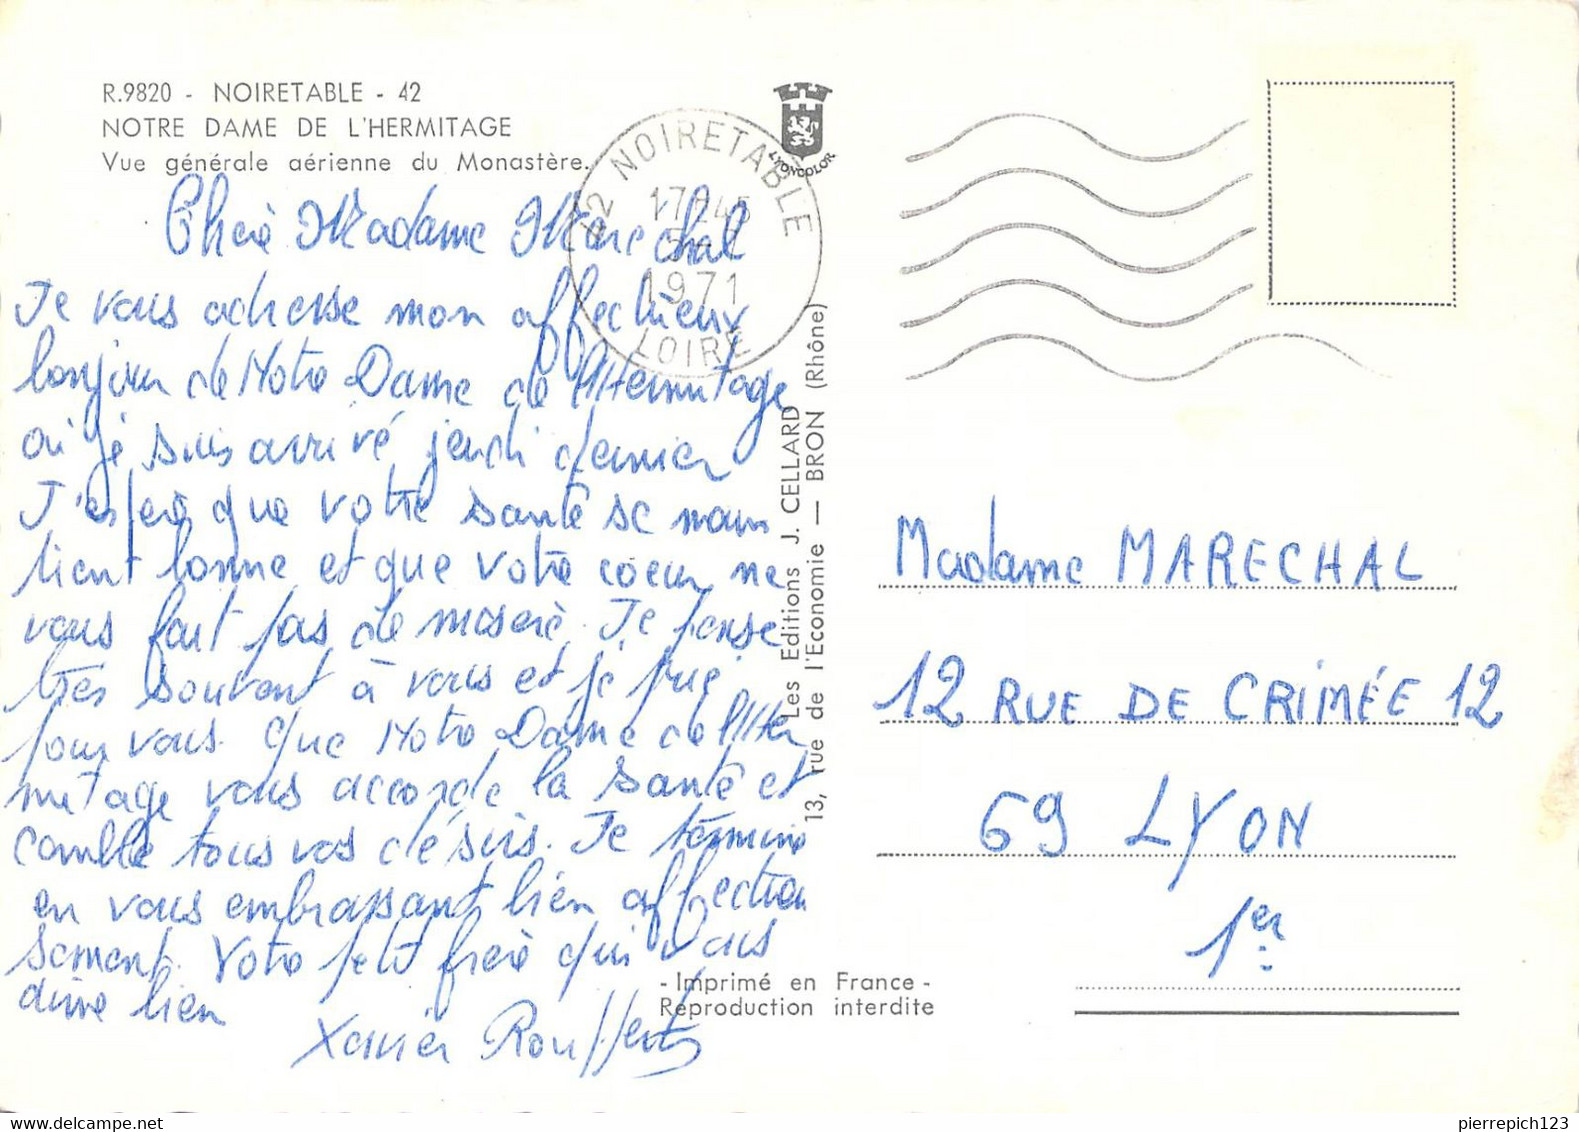 R.9820 - NOIRETABLE - 42
NOTRE DAME DE L'HERMITAGE
Vue générale aérienne du Monastère.
LYONCOLOR
42 NOIRETABLE
17H45
1971
LOIRE
Chère Madame Maréchal
Je vous adresse mon affectueux
bonjour de Notre Dame de l'Hermitage
où je suis arrivé jeudi dernier
J'espère que votre santé se main
tient bonne et que votre coeur ne
vous fait pas de misère. Je pense
très souvent à vous et je prie
pour vous. Que Notre Dame de l'Her
mitage vous accorde la santé et
comble tous vos désirs. Je termine
en vous embrassant bien affectueu
sement. Votre petit frère qui vous
aime bien
Xavier Rouffert
Les Editions J. CELLARD
13, rue de l'Economie — BRON (Rhône)
- Imprimé en France -
Reproduction interdite
Madame MARECHAL
12 RUE DE CRIMÉE 12
69 LYON
1er
www.delcampe.net
pierrepich123